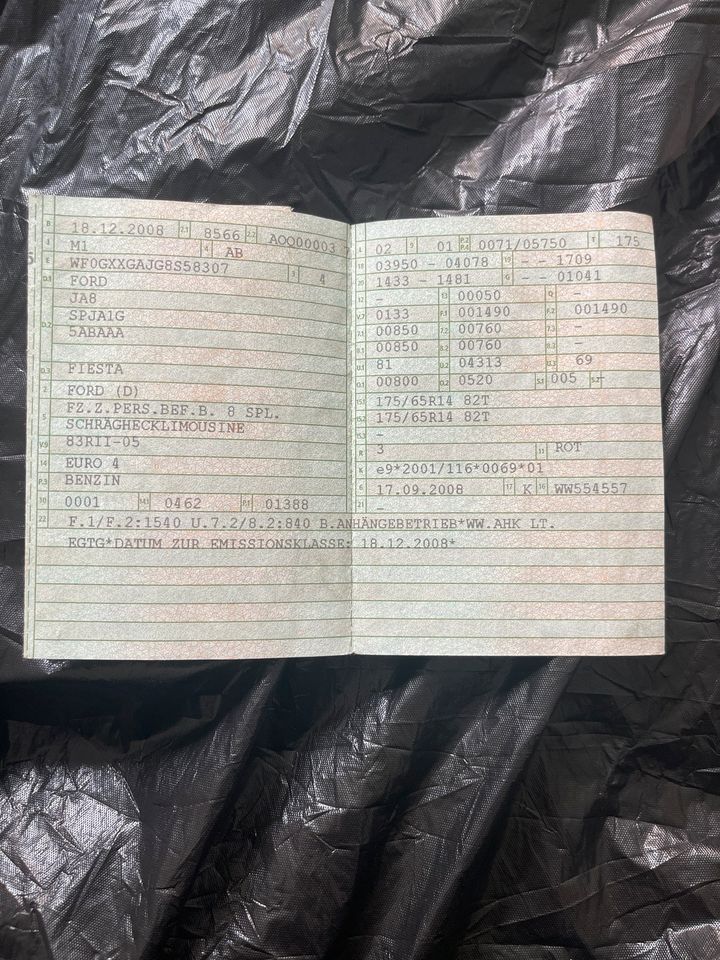 B 18.12.2008 2.1 8566 2.2 AOQ00003 7
J M1 4 AB
E WF0GXXGAJG8S58307 3 4
D.1 FORD
JA8
D.2 SPJA1G
5ABAAA
D.3 FIESTA
2 FORD (D)
5 FZ.Z.PERS.BEF.B. 8 SPL.
SCHRÄGHECKLIMOUSINE
V.9 83RII-05
14 EURO 4
P.3 BENZIN
10 0001 14.1 0462 P.1 01388
L 02 9 01 P.2 P.4 0071/05750 T 175
18 03950 - 04078 19 - - 1709
20 1433 - 1481 G - - 01041
12 - 13 00050 Q -
V.7 0133 F.1 001490 F.2 001490
7.1 00850 7.2 00760 7.3 -
8.1 00850 8.2 00760 8.3 -
U.1 81 U.2 04313 U.3 69
O.1 00800 O.2 0520 S.1 005 S.2 -
15.1 175/65R14 82T
15.2 175/65R14 82T
15.3 -
R 3 11 ROT
K e9*2001/116*0069*01
6 17.09.2008 17 K 16 WW554557
21 -
22 F.1/F.2:1540 U.7.2/8.2:840 B.ANHÄNGEBETRIEB*WW.AHK LT.
EGTG*DATUM ZUR EMISSIONSKLASSE: 18.12.2008*